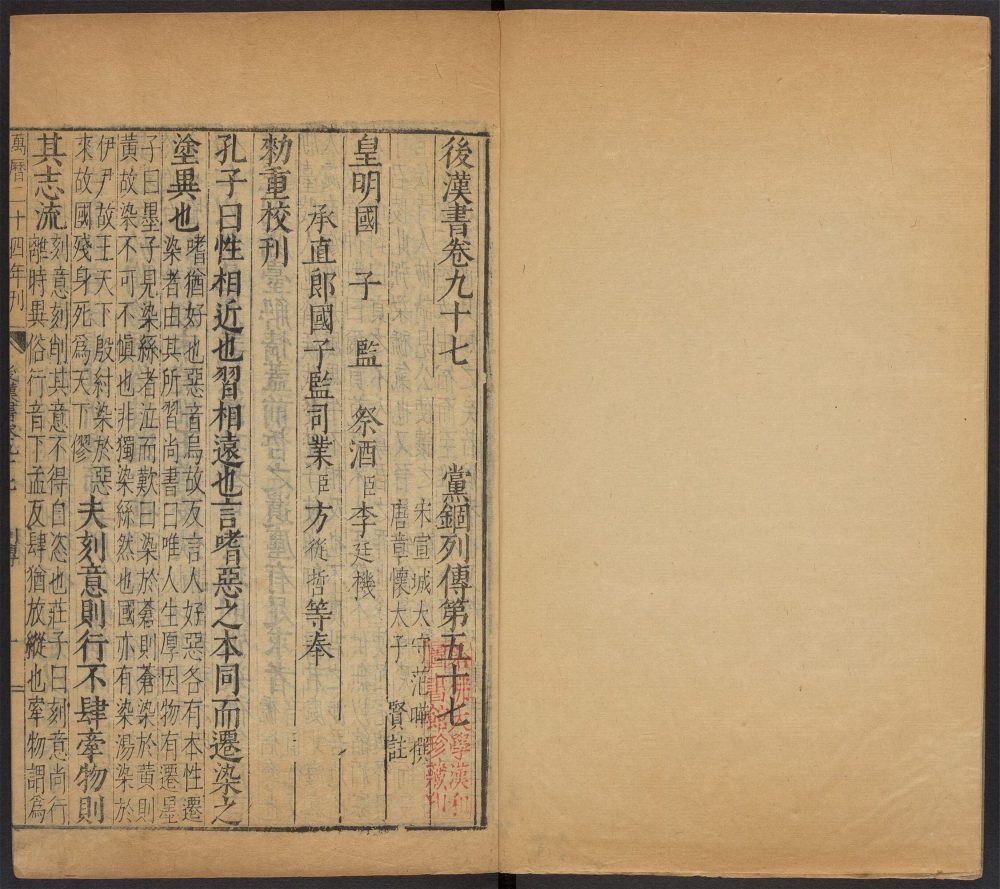 後漢書卷九十七 黨錮列傳第五十七
宋宣城太守范曄撰
唐章懷太子賢註
皇明國子監祭酒臣李廷機
承直郎國子監司業臣方從哲等奉
勅重校刊
孔子曰性相近也習相遠也言嗜惡之本同而遷染之
塗異也
嗜猶好也惡音烏故反言人好惡各有本性遷
染者由其所習尚書曰唯人生厚因物有遷墨
子曰墨子見染絲者泣而歎曰染於蒼則蒼染於黃則
黃故染不可不愼也非獨染絲然也國亦有染湯染於
伊尹故王天下殷紂染於惡
來故國殘身死爲天下僇
夫刻意則行不肆牽物則
其志流
刻意刻削其意不得自恣也莊子曰刻意尚行
離時異俗行音下孟反肆猶放縱也牽物謂爲
萬曆二十四年刊
後漢書卷九十七
列傳
一
哈佛大學漢和
圖書館珍藏印